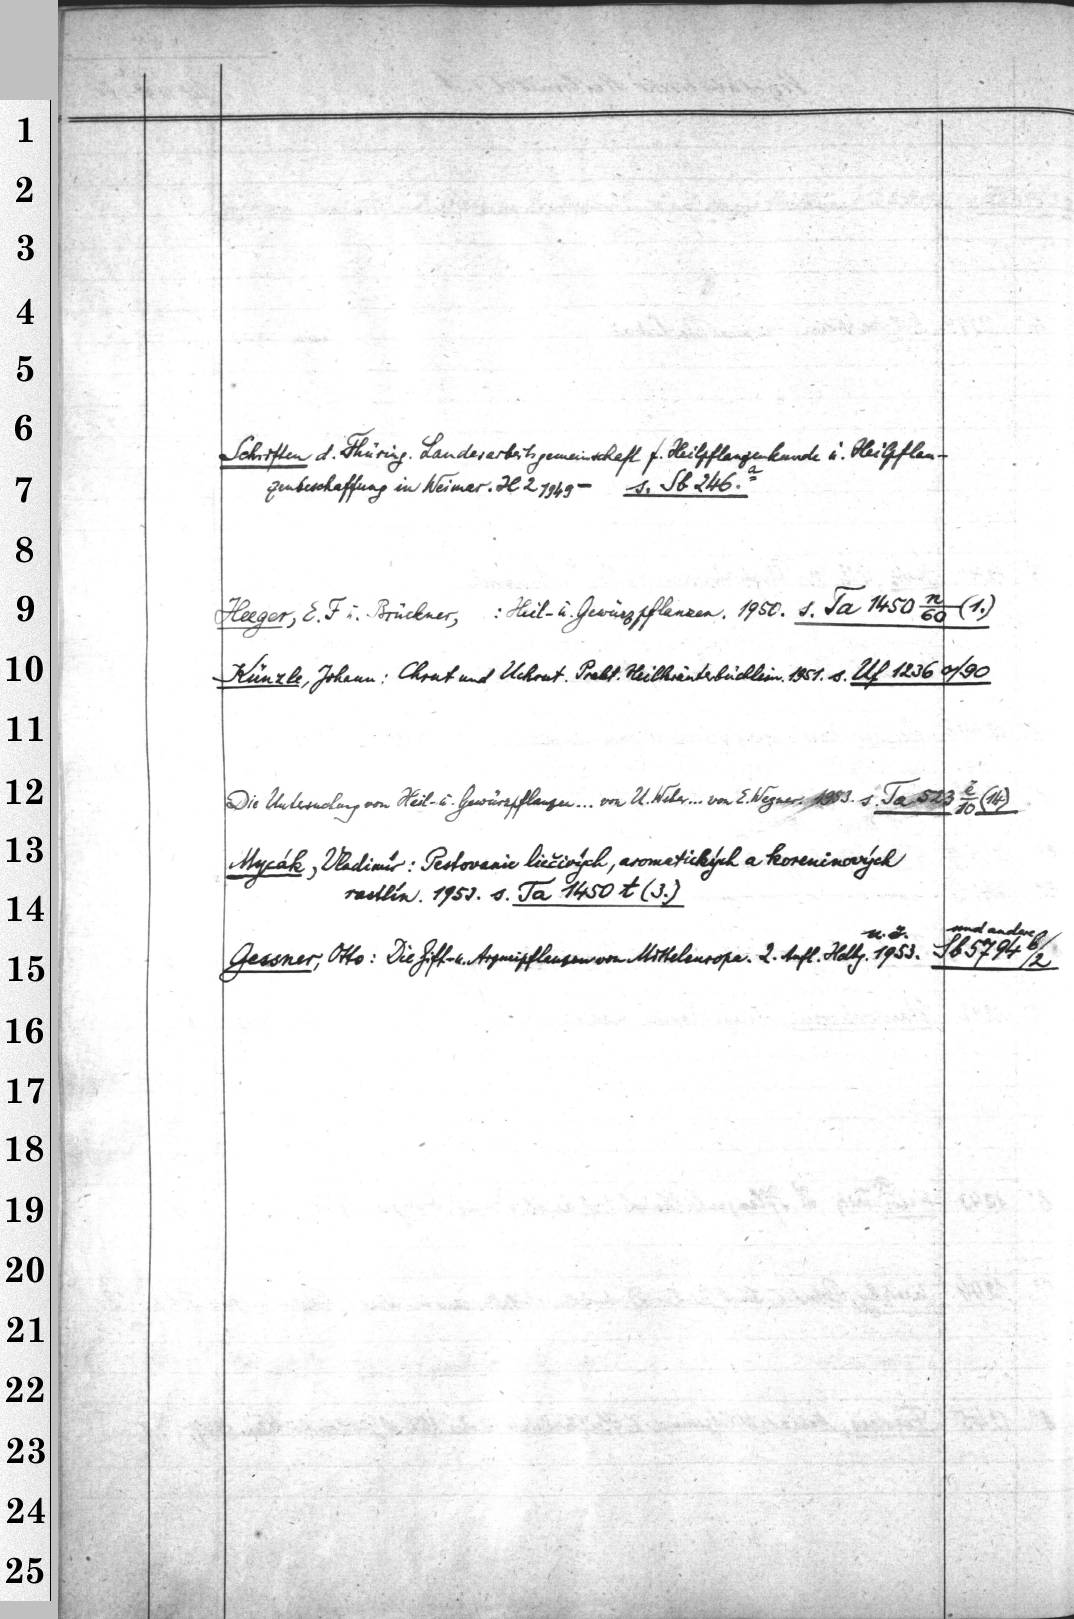 1
2
3
4
5
6
Schriften d. Thüring. Landesarbeitsgemeinschaft f. Heilpflanzenkunde u. Heilpflan-
7
zenbeschaffung in Weimar. H 2 1949 – s. Sb 246. a
8
9
Heeger, E. F. u. Brückner, : Heil- u. Gewürzpflanzen. 1950. s. Ta 1450 n/60 (1.)
10
Künzle, Johann: Chrut und Uchrut. Prakt. Heilkräuterbüchlein. 1951. s. Uf 1236 o/90
11
12
Die Untersuchung von Heil- u. Gewürzpflanzen... von U. Weber... von E. Wegner. 1953. s. Ta 523 č/10 (14)
13
Mycák, Vladimír: Pestovanie liečivých, aromatických a koreninových
14
rastlín. 1953. s. Ta 1450 t (3.)
u. ä. und andere
15
Gessner, Otto: Die Gift- u. Arzneipflanzen von Mitteleuropa. 2. Aufl. Hdlbg. 1953. Sb 5794 b/2
16
17
18
19
20
21
22
23
24
25